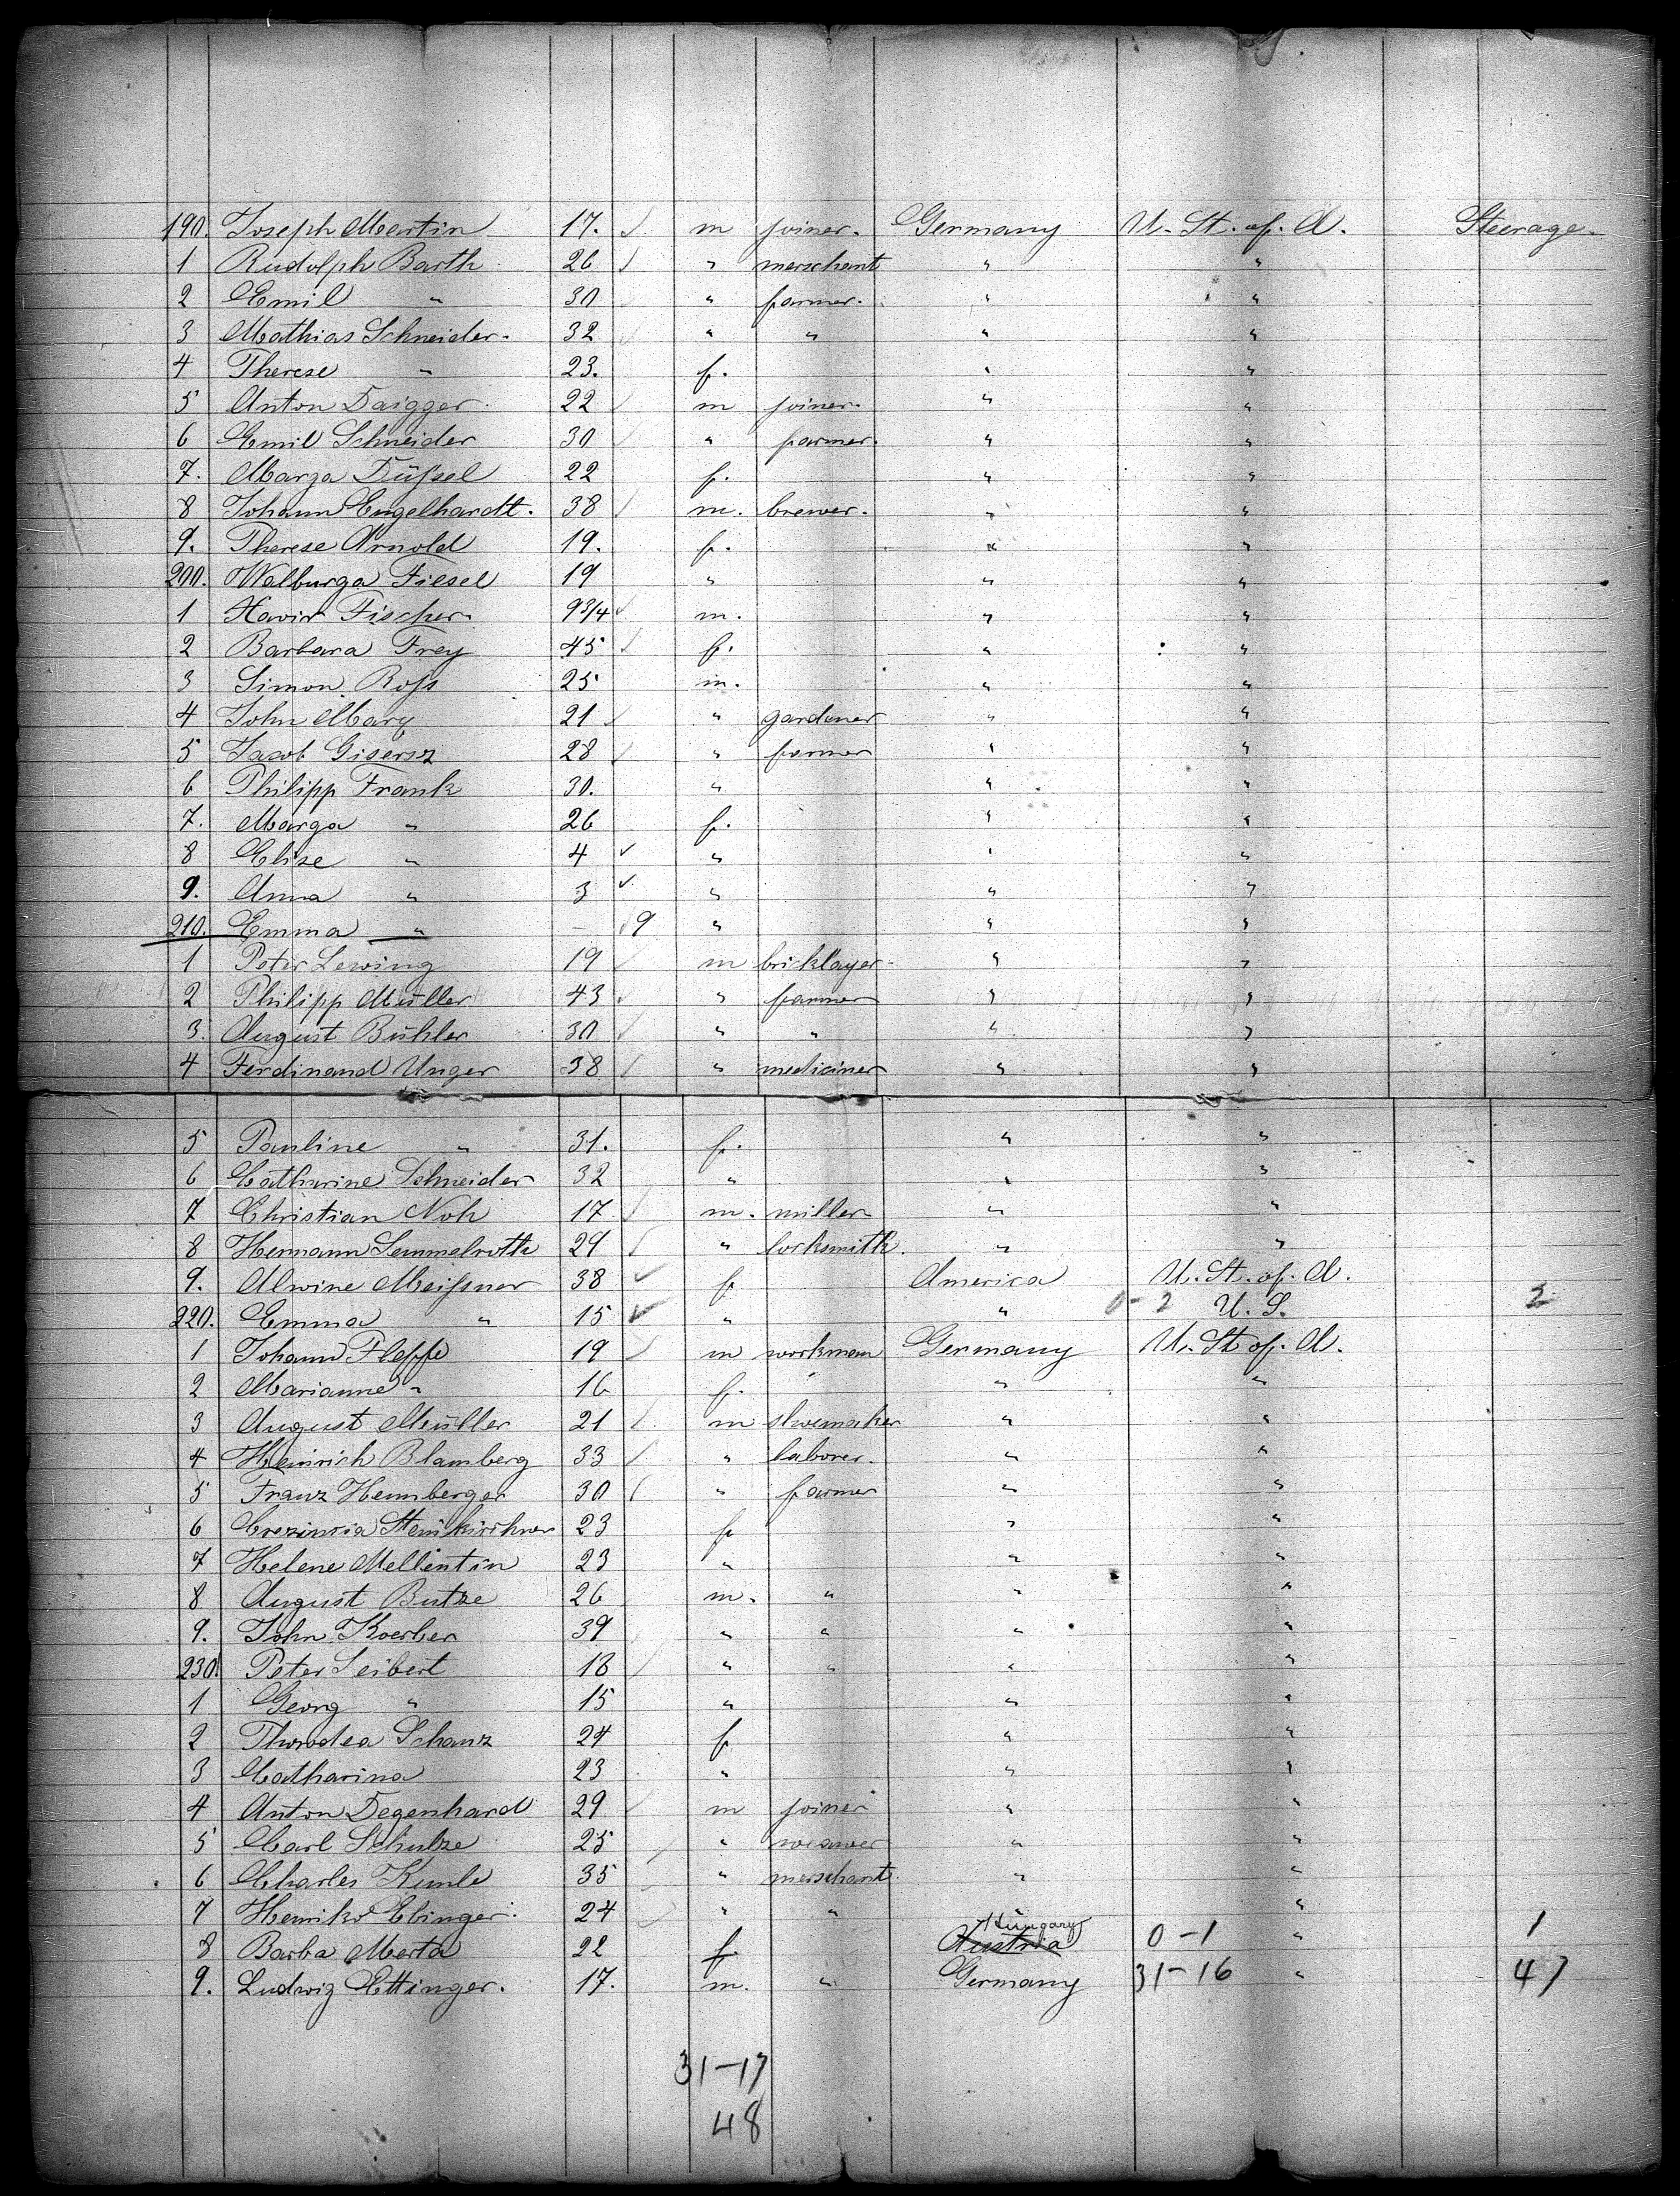 190. Joseph Martin 17. ✓. m joiner. Germany U. St. of. A. Steerage.
1 Rudolph Barth 26 ✓ " merschant " "
2 Emil " 30 " farmer. " "
3 Mathias Schneider. 32 " " " "
4 Therese " 23. f. " "
5 Anton Daigger. 22 ✓ m joiner. " "
6 Emil Schneider 30 " farmer. " "
7. Marga Düssel 22 f. " "
8 Johann Engelhardt. 38 ✓ m. brewer. " "
9. Therese Arnold 19. f. " "
200. Walburga Fiesel 19 " " "
1 Xavir Fischer 9 3/4 ✓ m. " "
2 Barbara Frey 45 ✓ f. " "
3 Simon Ross 25 m. " "
4 John Marx 21 ✓ " gardener " "
5 Jacob 28 ✓ " farmer " "
6 Philipp Frank 30. " " "
7. Marga " 26 f. " "
8 Elise " 4 ✓ " " "
9. Anna " 3 ✓ " " "
210. Emma " – ✓ 9 " " "
1 Peter Lewing 19 ✓ m bricklayer " "
2 Philipp Müller 43 ✓ " farmer " "
3. August Bühler 30 ✓ " " " "
4 Ferdinand Unger 38 ✓ " mediciner " "
5 Pauline " 31. f. " "
6 Catharine Schneider 32 " " "
7 Christian Noh 17 ✓ m. miller " "
8 Hermann Semmelroth 29 ✓ " locksmith. " "
9. Alwine Meissner 38 ✓ f America U. St. of. A.
220. Emma " 15 ✓ " " 0-2 U. S. 2
1 Johann 19 ✓ m workman Germany U. St of. A.
2 Marianne " 16 f. " "
3 August Müller 21 ✓ m shoemaker " "
4 Heinrich Blamberg 33 ✓ " laborer. " "
5 Franz Hemberger 30 ✓ " farmer " "
6 23 f " "
7 Helene Mellentin 23 " " "
8 August Butze 26 m. " " "
9. John Koerber 39 " " " "
230. Peter Seibert 18 ✓ " " " "
1 Georg " 15 " " "
2 Schanz 24 f " "
3 Catharina 23 " " "
4 Anton Degenhard 29 ✓ m joiner " "
5 Carl Schulze 25 ✓ " weawer " "
6 Charles Kunle 35 " merschant " "
7 Ebinger 24 ✓ " " " "
Hungary
8 Barba Merta 22 f. Austria 0-1 " 1
9. Ludwig Ettinger. 17. m. " Germany 31-16 " 47
31-17
48